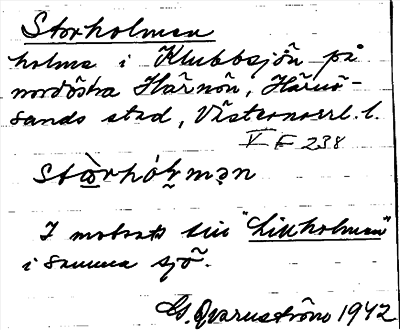 Storholmen
holme i Klubbsjön på
nordöstra Härnön, Härnö-
sands stad, Västernorrl. l.
V F 238
stòrhólmən
I motsats till "Lillholmen"
i samma sjö.
G. Qvarnström 1942